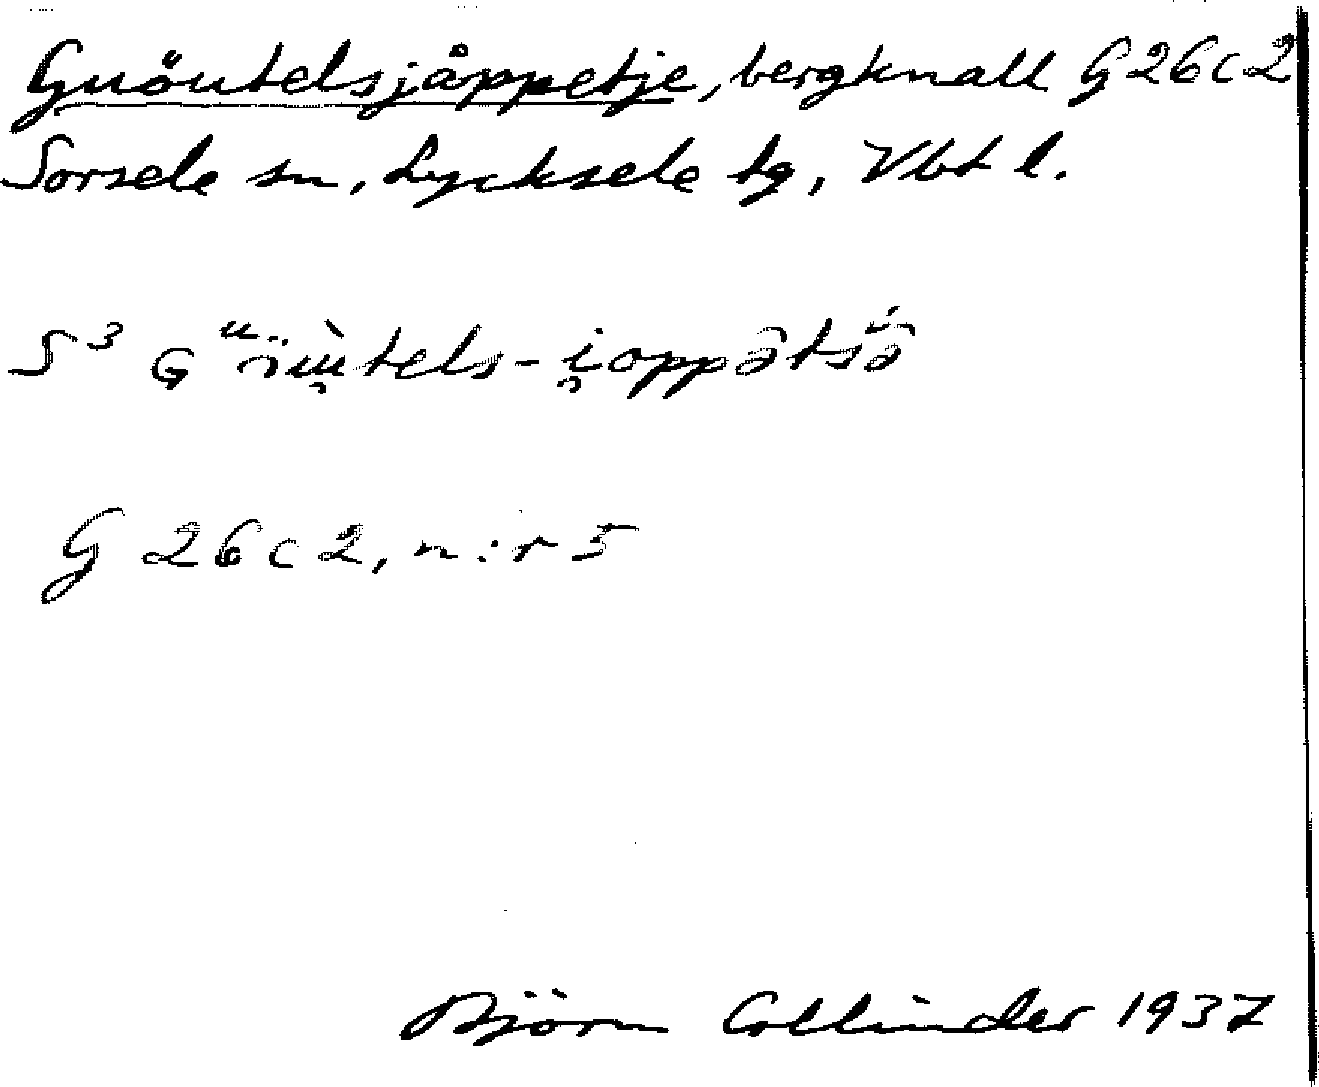 Guöutelsjåppetje, bergknall G26c2
Sorsele sn, Lycksele tg, Vbt l.
S³
G 26c2, n:r 5
Björn Collinder 1937